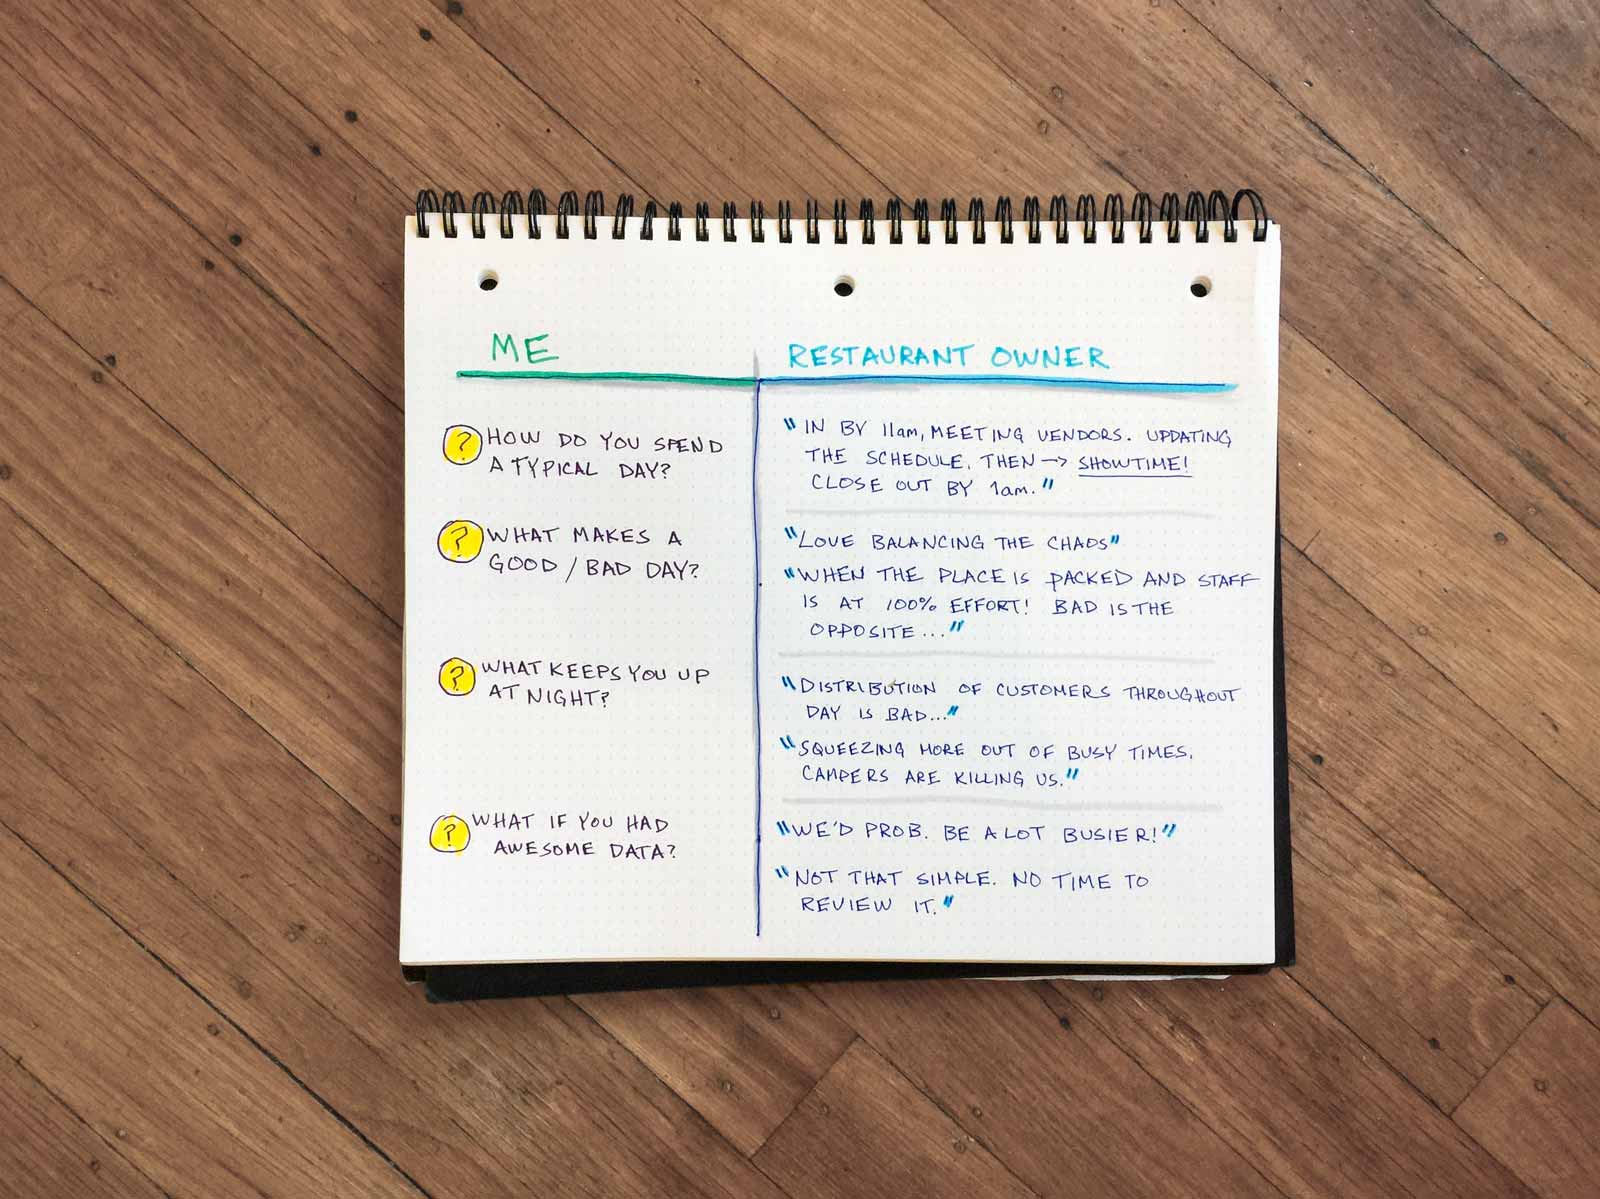 ME
RESTAURANT OWNER
? HOW DO YOU SPEND
A TYPICAL DAY?
"IN BY 11am, MEETING VENDORS. UPDATING
THE SCHEDULE, THEN → SHOWTIME!
CLOSE OUT BY 1am."
? WHAT MAKES A
GOOD / BAD DAY?
"LOVE BALANCING THE CHAOS"
"WHEN THE PLACE IS PACKED AND STAFF
IS AT 100% EFFORT! BAD IS THE
OPPOSITE..."
? WHAT KEEPS YOU UP
AT NIGHT?
"DISTRIBUTION OF CUSTOMERS THROUGHOUT
DAY IS BAD..."
"SQUEEZING MORE OUT OF BUSY TIMES.
CAMPERS ARE KILLING US."
? WHAT IF YOU HAD
AWESOME DATA?
"WE'D PROB. BE A LOT BUSIER!"
"NOT THAT SIMPLE. NO TIME TO
REVIEW IT."